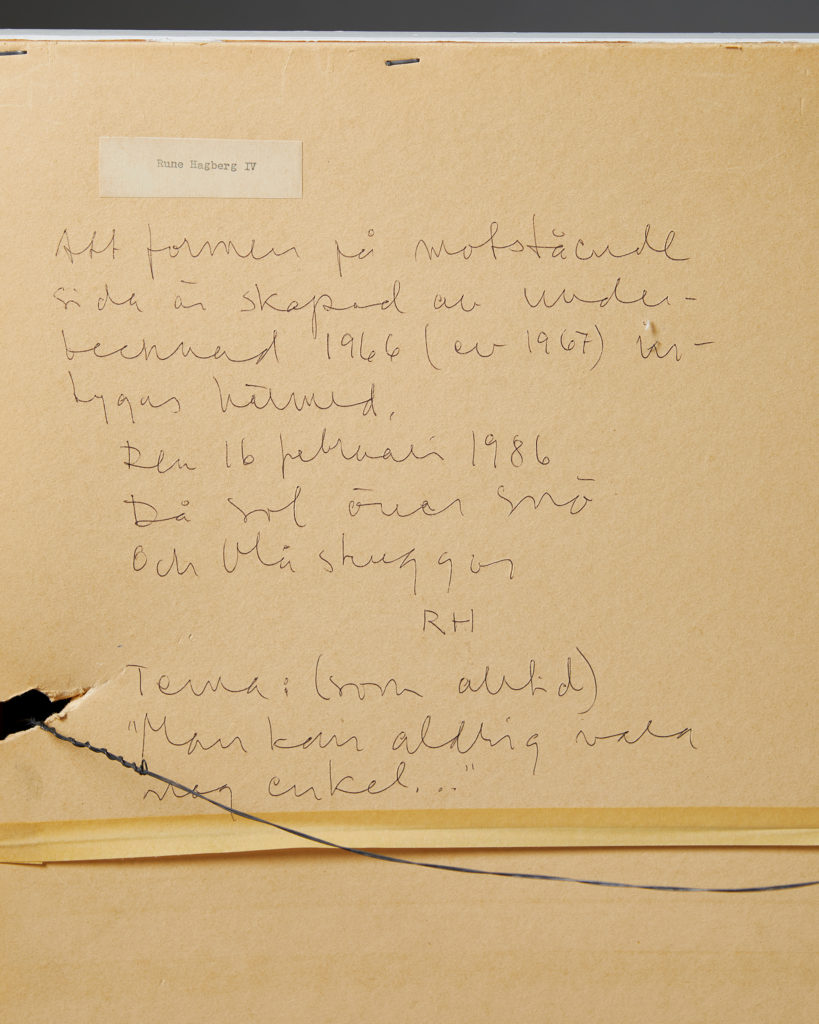 Rune Hagberg IV
Att formen på motstående
sida är skapad av under-
tecknad 1966 (ev 1967) in-
tygas härmed.
Den 16 februari 1986
Då sol över snö
och blå skuggor
RH
Tema: (som alltid)
"Man kan aldrig vara
nog enkel..."